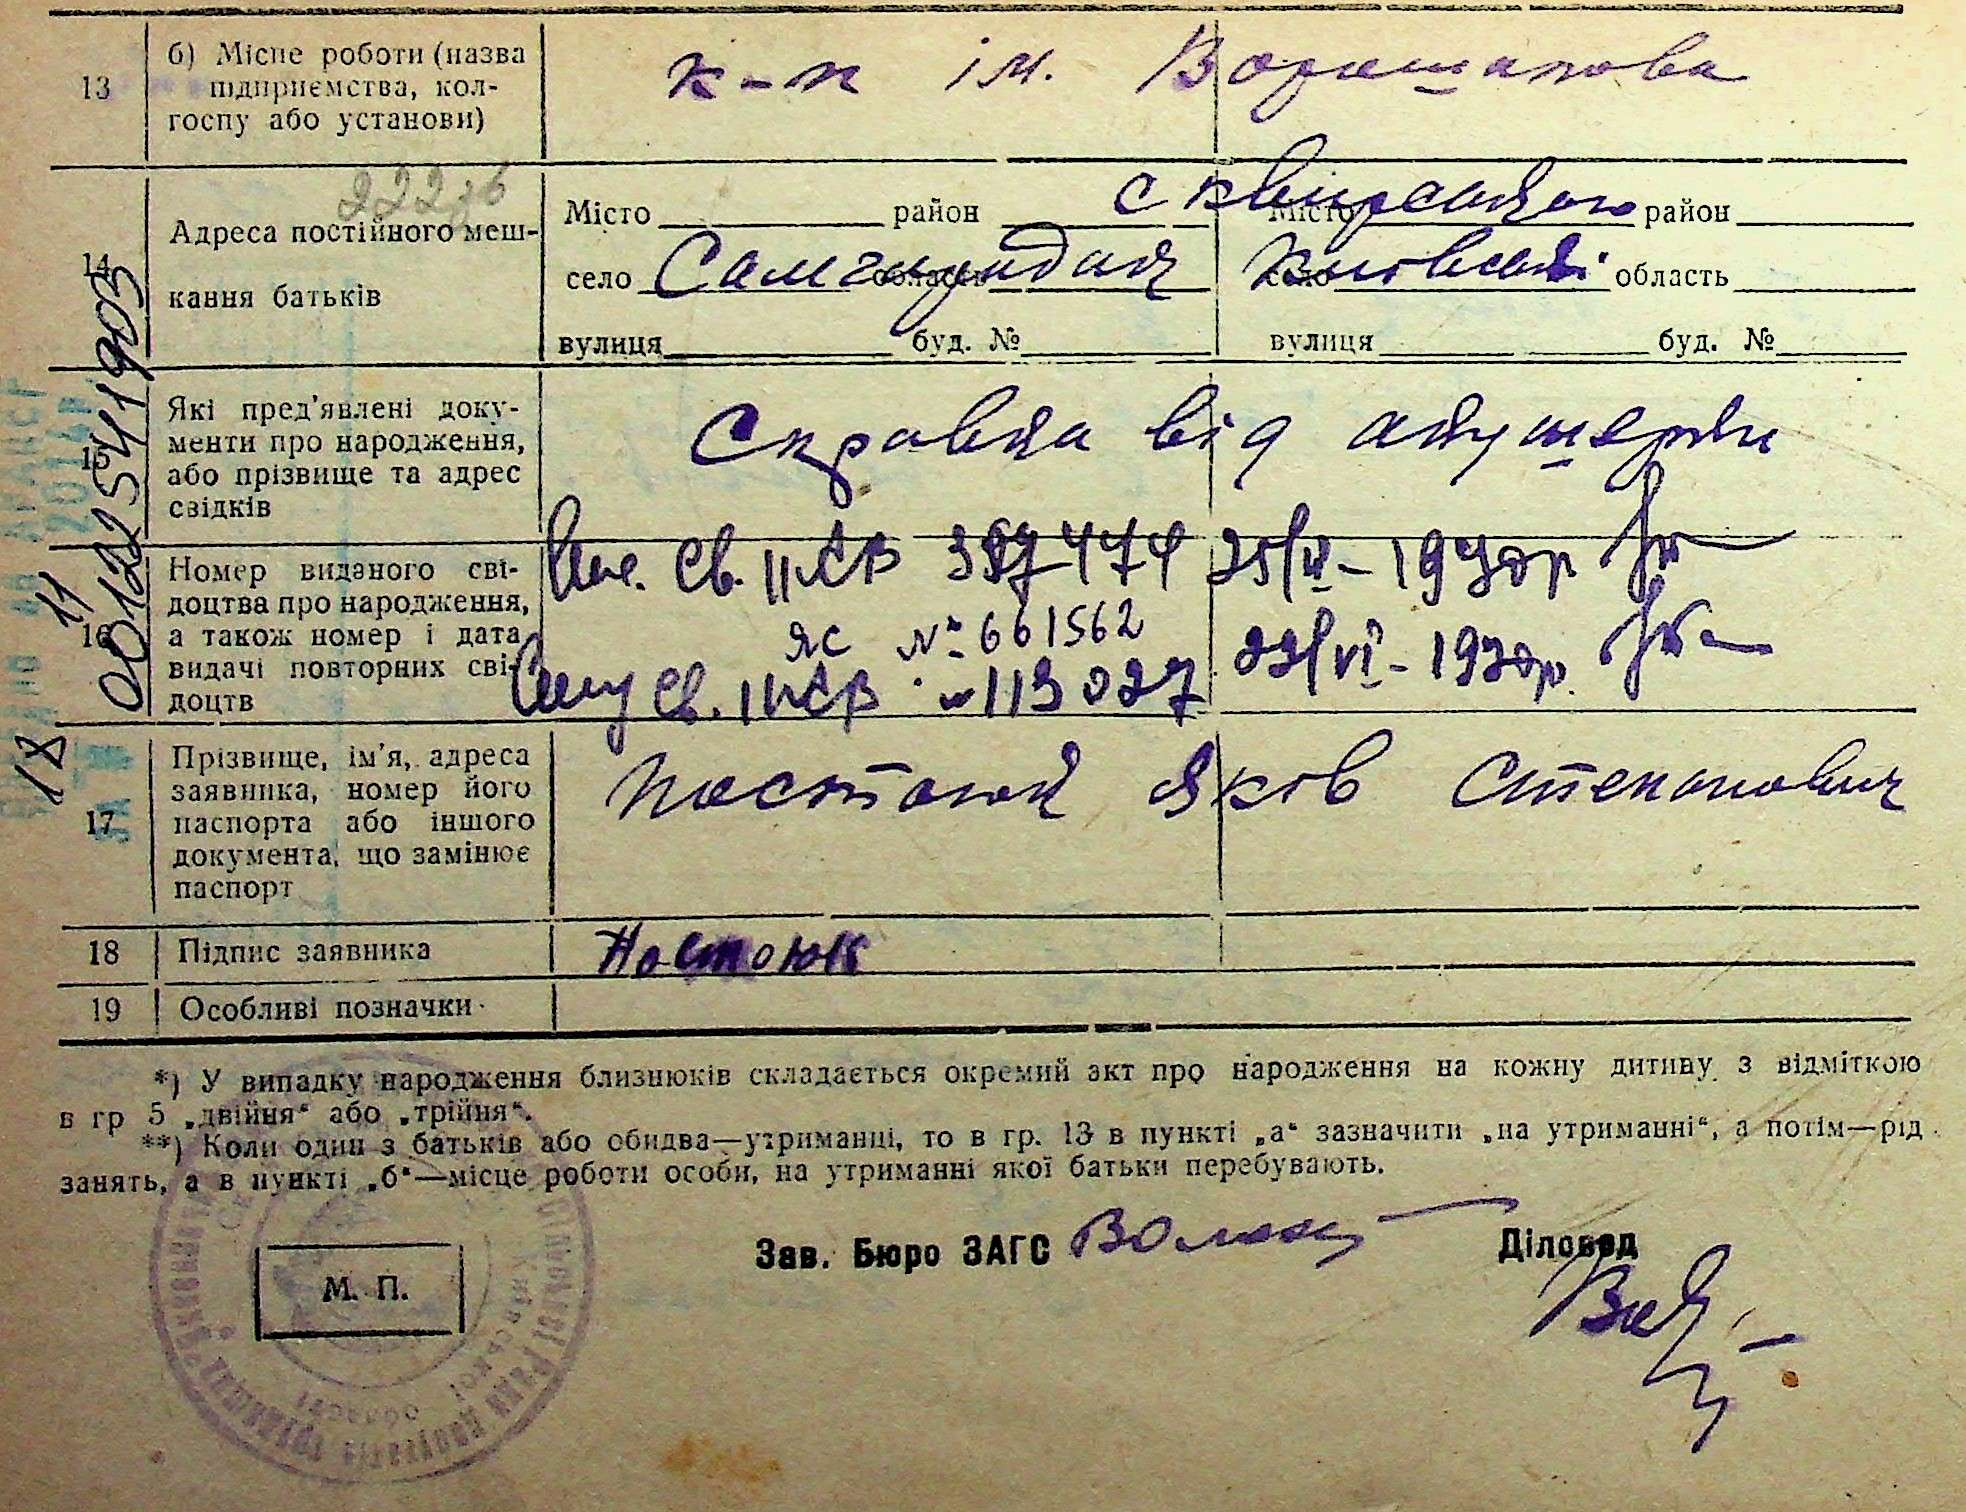 13 б) Місце роботи (назва
підприємства, кол-
госпу або установи)
к-п ім. Ворошилова
222
14 Адреса постійного меш-
кання батьків
Місто район Сквирського Місто район
село Самгородок область село Київської область
вулиця буд. № вулиця буд. №
15 Які пред'явлені доку-
менти про народження,
або прізвище та адрес
свідків
Справка від акушерки
16 Номер виданого сві-
доцтва про народження,
а також номер і дата
видачі повторних сві-
доцтв
Св. 1970р.
ЯС № 661562
Св. 113027 VI-1970р.
17 Прізвище, ім'я, адреса
заявника, номер його
паспорта або іншого
документа, що замінює
паспорт
Постоюк Яков Степанович
18 Підпис заявника
Постоюк
19 Особливі позначки
00122541903
11
18
*) У випадку народження близнюків складається окремий акт про народження на кожну дитину з відміткою
в гр 5 „двійня“ або „трійня“.
**) Коли один з батьків або обидва—утриманці, то в гр. 13 в пункті „а“ зазначити „на утриманні“, а потім—рід
занять, а в пункті „б“—місце роботи особи, на утриманні якої батьки перебувають.
Зав. Бюро ЗАГС Діловод
М. П.
області